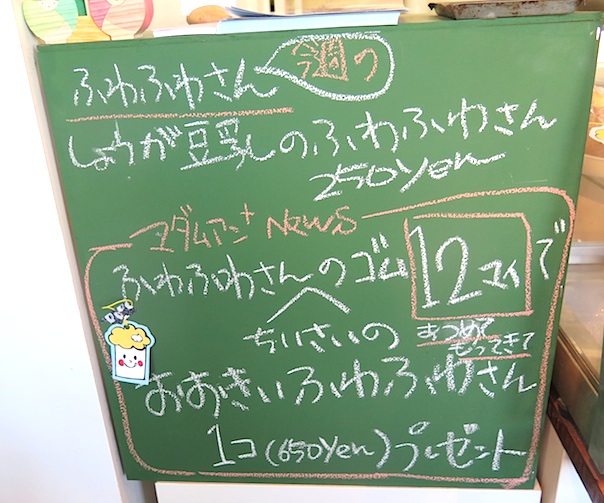 今週の
ふわふわさん
しょうが豆乳のふわふわさん
250Yen
マダムアンナ NEWS
ふわふわさんのゴム12コで
ちいさいの
あつめて
もってきて
おおきいふわふわさん
1コ(650Yen)プレゼント